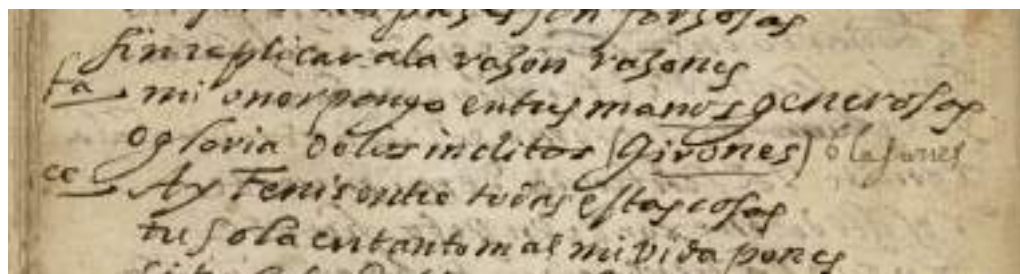 forsosas
sin replicar ala razon razones
fa mi onor pongo entus manos generosas
o gloria delos inclitos (Girones)
ce Ay Fenis entre todas estas cosas
tu sola entanto mal mi vida pones